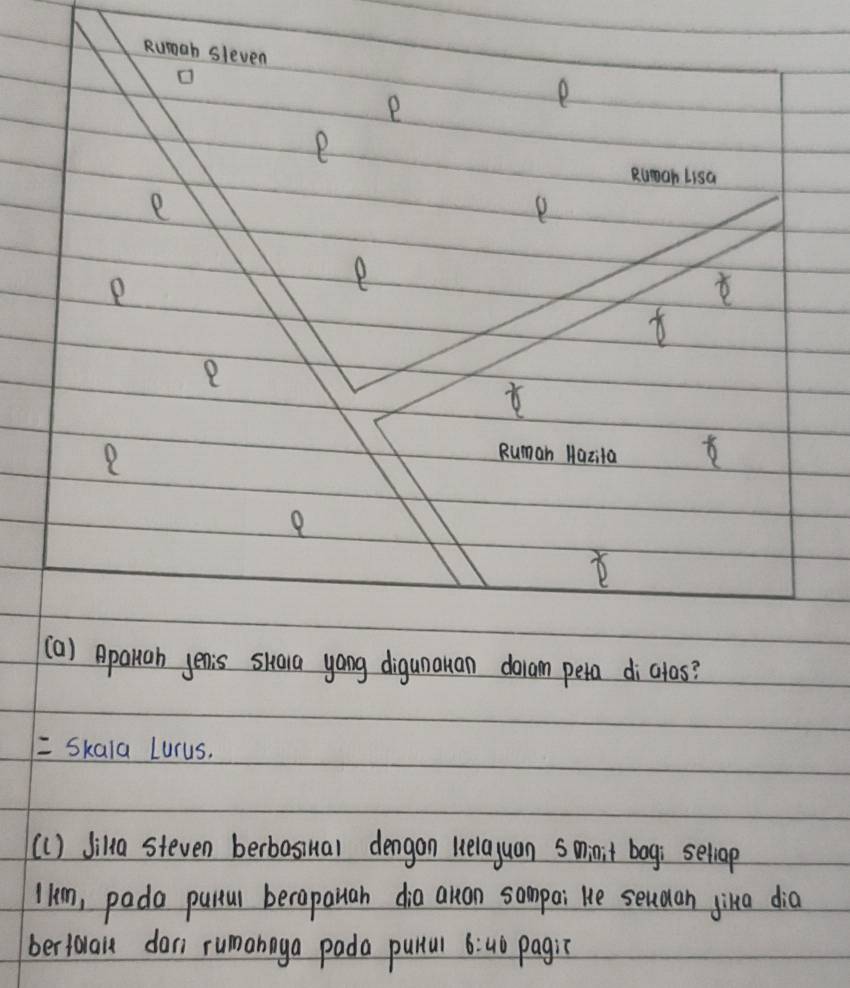 Rumah Steven
Rumah Lisa
Rumah Hazila
(a) Apakah jenis skala yang digunakan dalam peta di atas?
= Skala Lurus.
(c) Jika Steven berbasikal dengan kelajuan 5 minit bagi setiap
1 km, pada pukul berapakah dia akan sampai ke sekolah jika dia
bertolak dari rumahnya pada pukul 6:40 pagi?